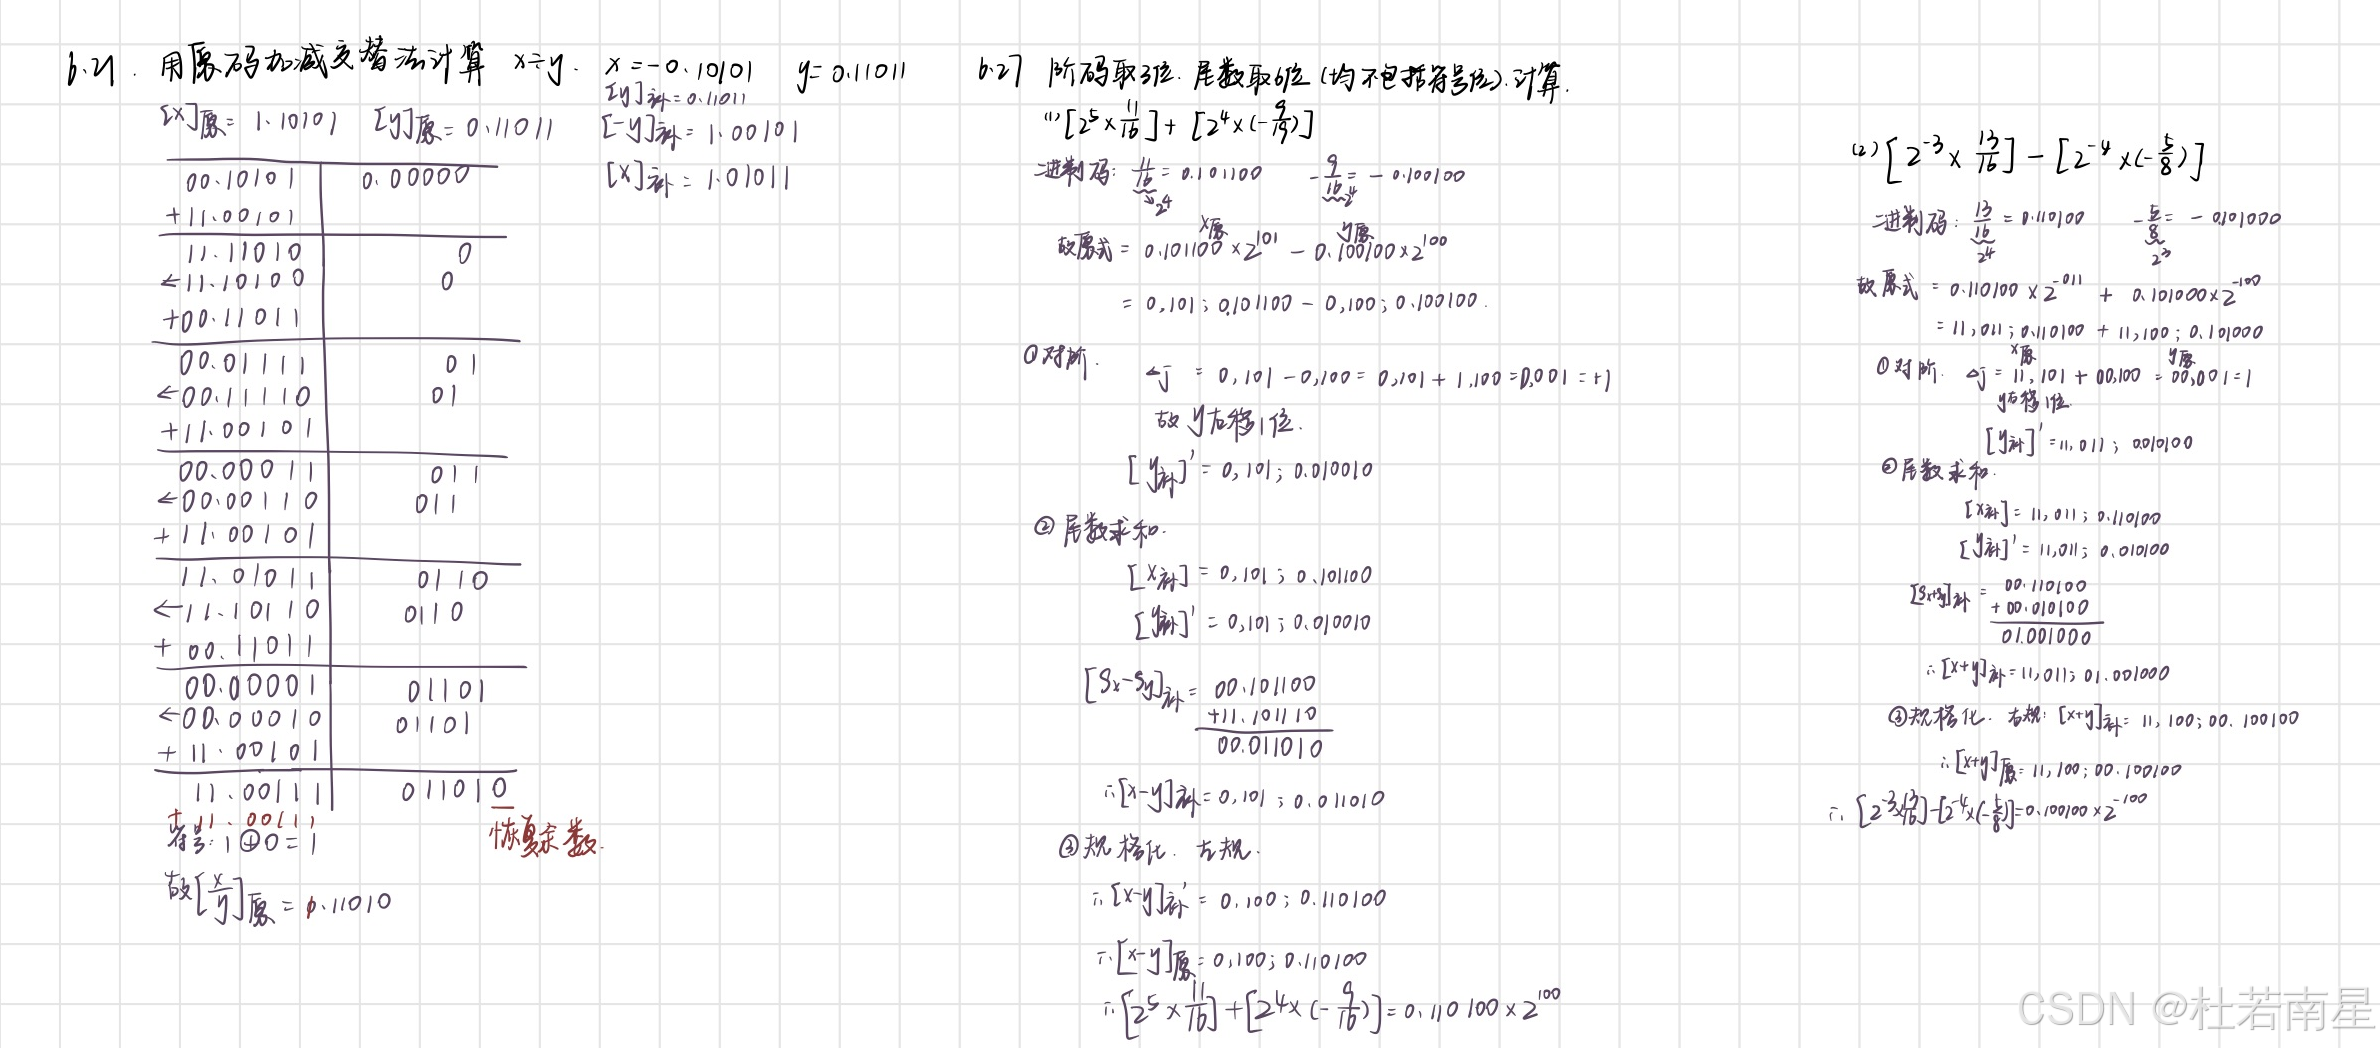 6.21. 用原码加减交替法计算 x÷y. x=-0.10101 y=0.11011
[x]原=1.10101 [y]原=0.11011
[y]补=0.11011
[-y]补=1.00101
[x]补=1.01011
00.10101 0.00000
+11.00101
11.11010 0
←11.10100 0
+00.11011
00.01111 01
←00.11110 01
+11.00101
00.00011 011
←00.00110 011
+11.00101
11.01011 0110
←11.10110 0110
+00.11011
00.00001 01101
←00.00010 01101
+11.00101
11.00111 011010
+11.00111
恢复余数.
符号:1⊕0=1
故[x/y]原=0.11010
6.27 阶码取3位.尾数取6位(均不包括符号位).计算.
(1)[2^5×11/16]+[2^4×(-9/16)]
二进制码: 11/16=0.101100 -9/16=-0.100100
2^4 2^4
x原 y原
故原式=0.101100×2^101-0.100100×2^100
=0,101;0.101100-0,100;0.100100.
①对阶.
△j=0,101-0,100=0,101+1,100=0,001=+1
故y右移1位.
[y补]'=0,101;0.010010
②尾数求和.
[x补]=0,101;0.101100
[y补]'=0,101;0.010010
[Sx-Sy]补=00.101100
+11.101110
00.011010
∴[x-y]补=0,101;0.011010
③规格化. 左规.
∴[x-y]补'=0,100;0.110100
∴[x-y]原=0,100;0.110100
∴[2^5×11/16]+[2^4×(-9/16)]=0.110100×2^100
(2)[2^-3×13/16]-[2^-4×(-5/8)]
二进制码: 13/16=0.110100 -5/8=-0.101000
2^4 2^3
故原式=0.110100×2^-011+0.101000×2^-100
=11,011;0.110100+11,100;0.101000
x原 y原
①对阶. △j=11,101+00,100=00,001=1
y右移1位.
[y补]'=11,011;0.010100
②尾数求和.
[x补]=11,011;0.110100
[y补]'=11,011;0.010100
[Sx+Sy]补=00.110100
+00.010100
01.001000
∴[x+y]补=11,011;01.001000
③规格化. 右规:[x+y]补=11,100;00.100100
∴[x+y]原=11,100;00.100100
∴[2^-3×13/16]-[2^-4×(-5/8)]=0.100100×2^-100
CSDN @杜若南星